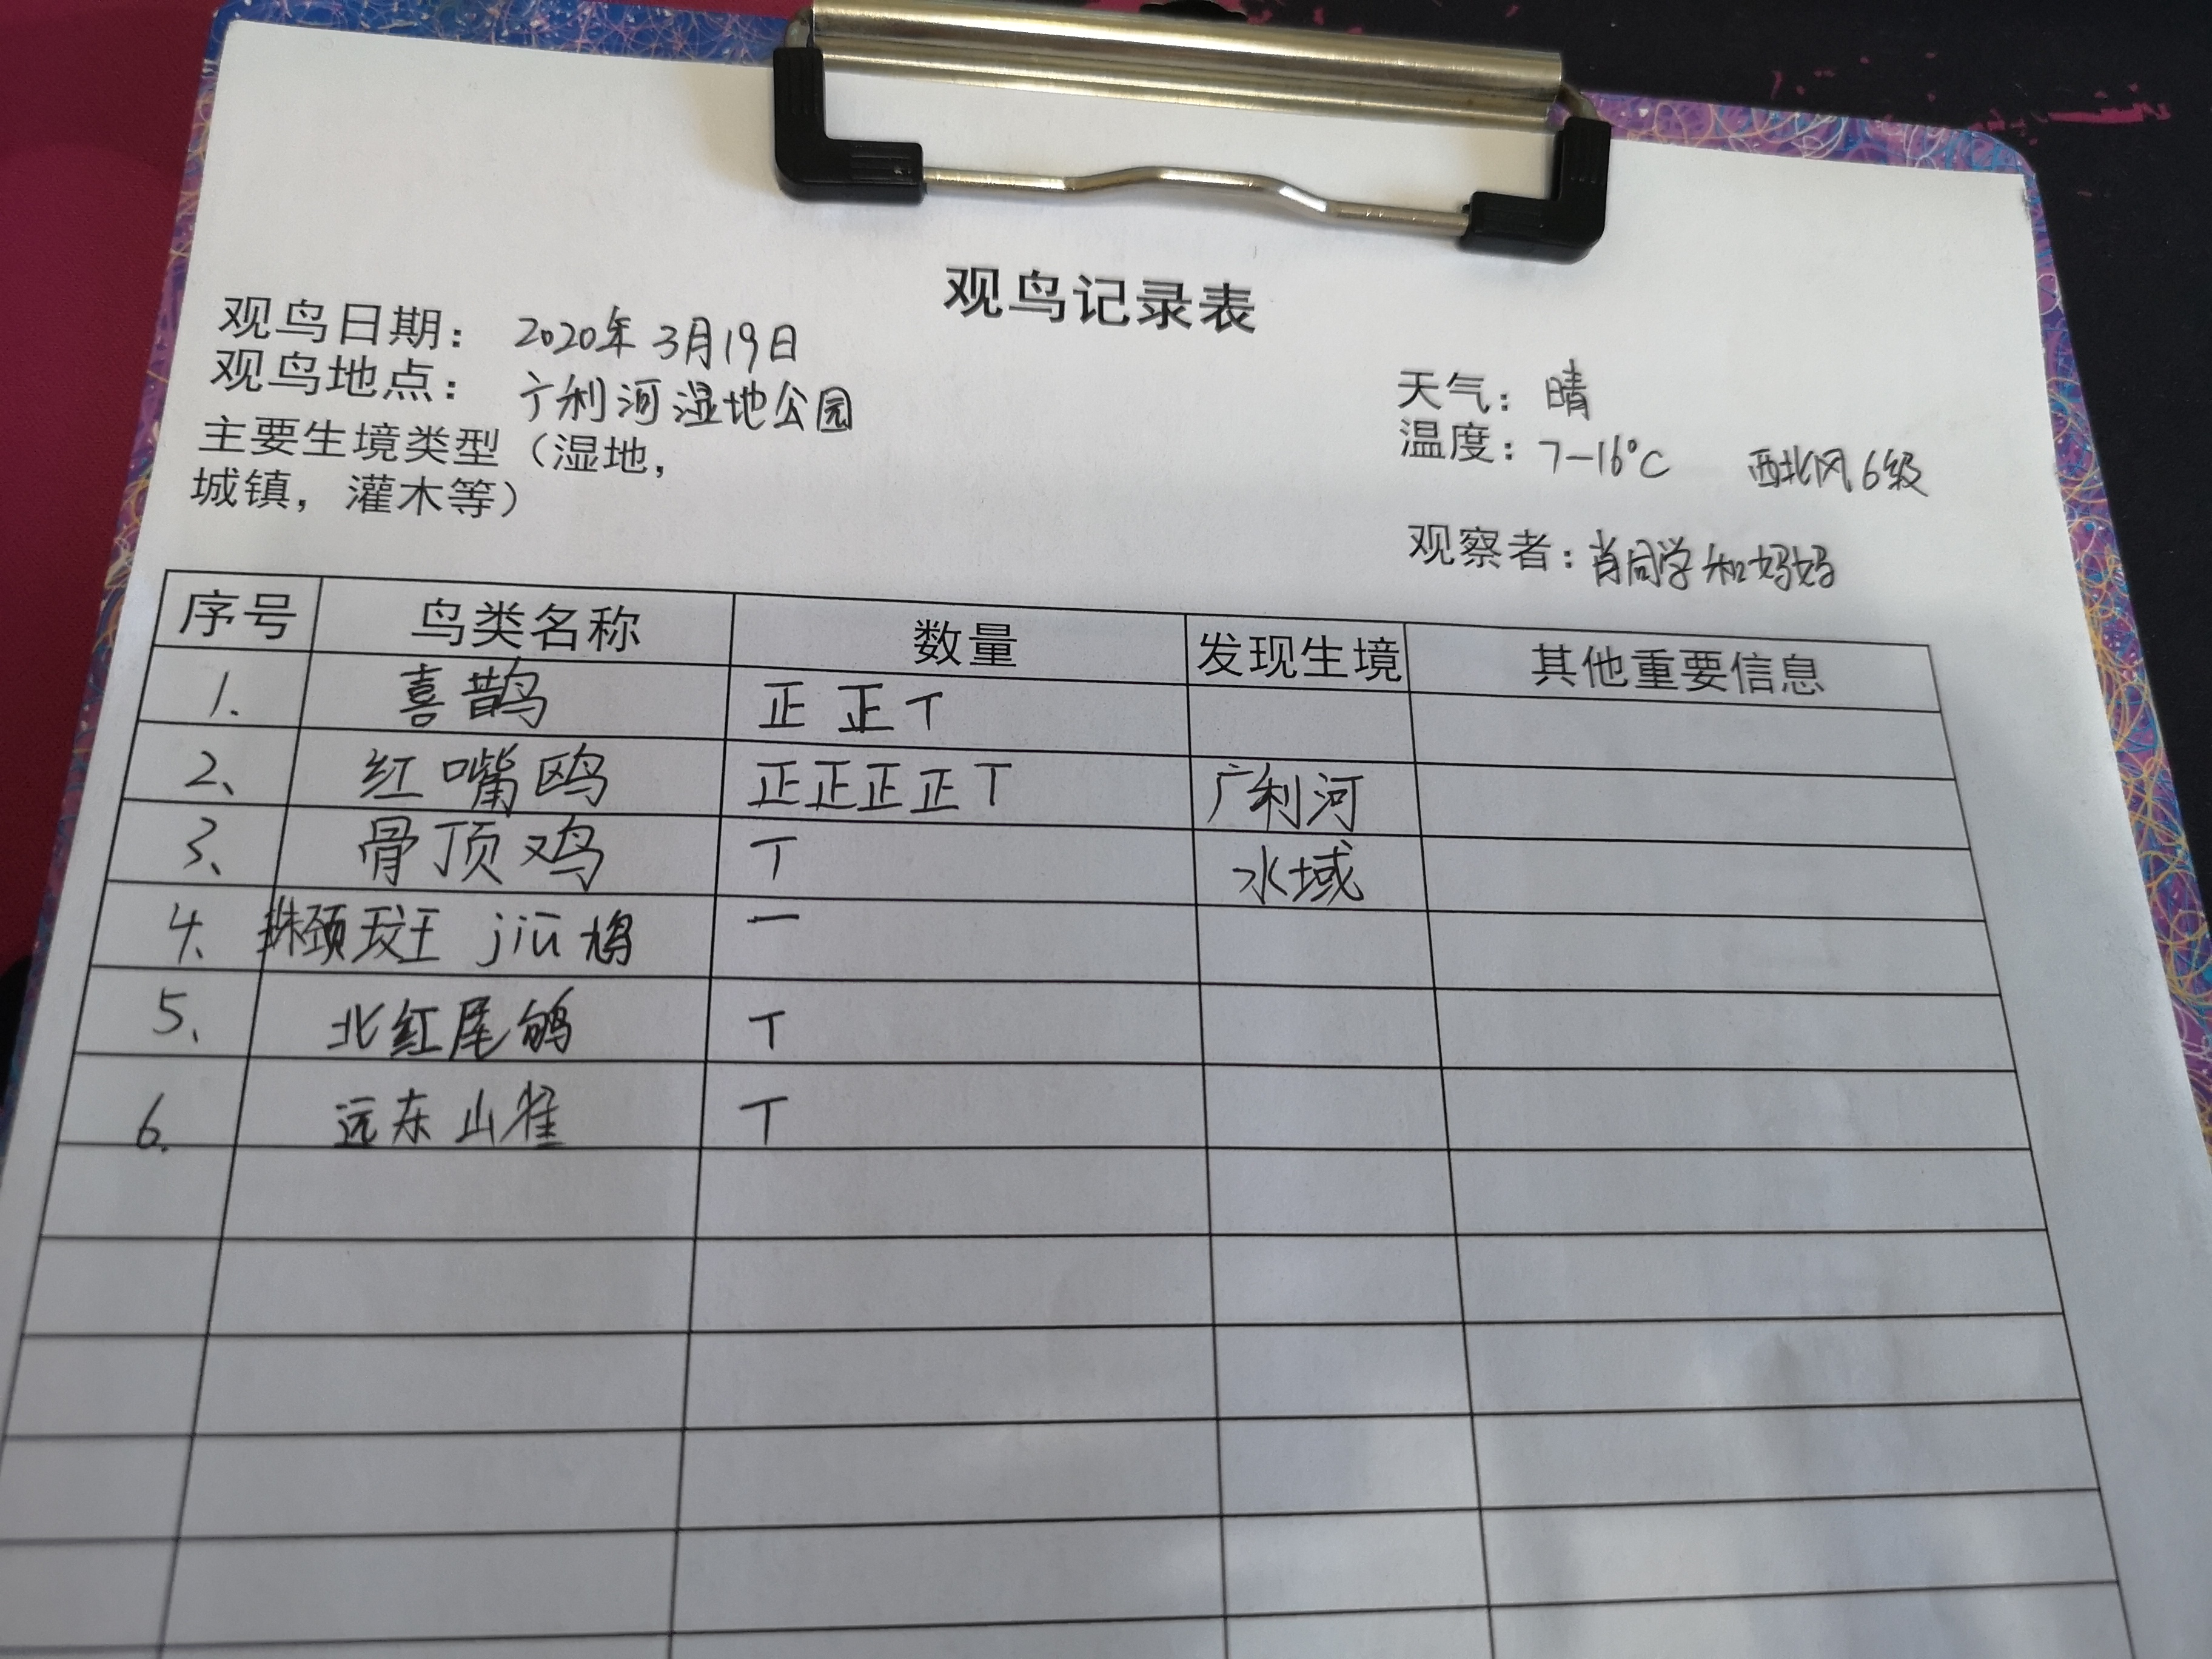 观鸟记录表
观鸟日期： 2020年3月19日
观鸟地点： 广利河湿地公园
天气： 晴
主要生境类型（湿地，
城镇，灌木等）
温度： 7-16℃ 西北风6级
观察者：肖同学和妈妈
序号 鸟类名称 数量 发现生境 其他重要信息
1. 喜鹊 正正丅
2、 红嘴鸥 正正正正丅 广利河
3、 骨顶鸡 丅 水域
4. 珠颈斑 jiū 鸠 一
5、 北红尾鸲 丅
6. 远东山雀 丅